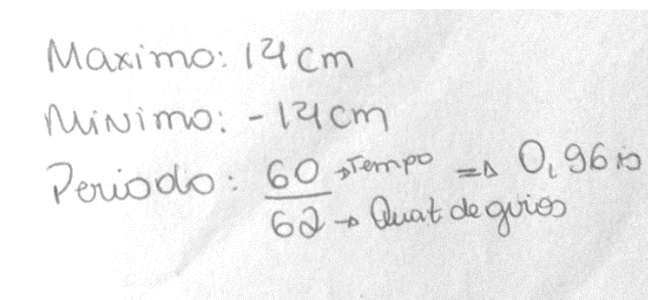 Maximo: 14cm
Minimo: -14cm
Periodo: 60 →Tempo => 0,96 s
62 → Quat de guios